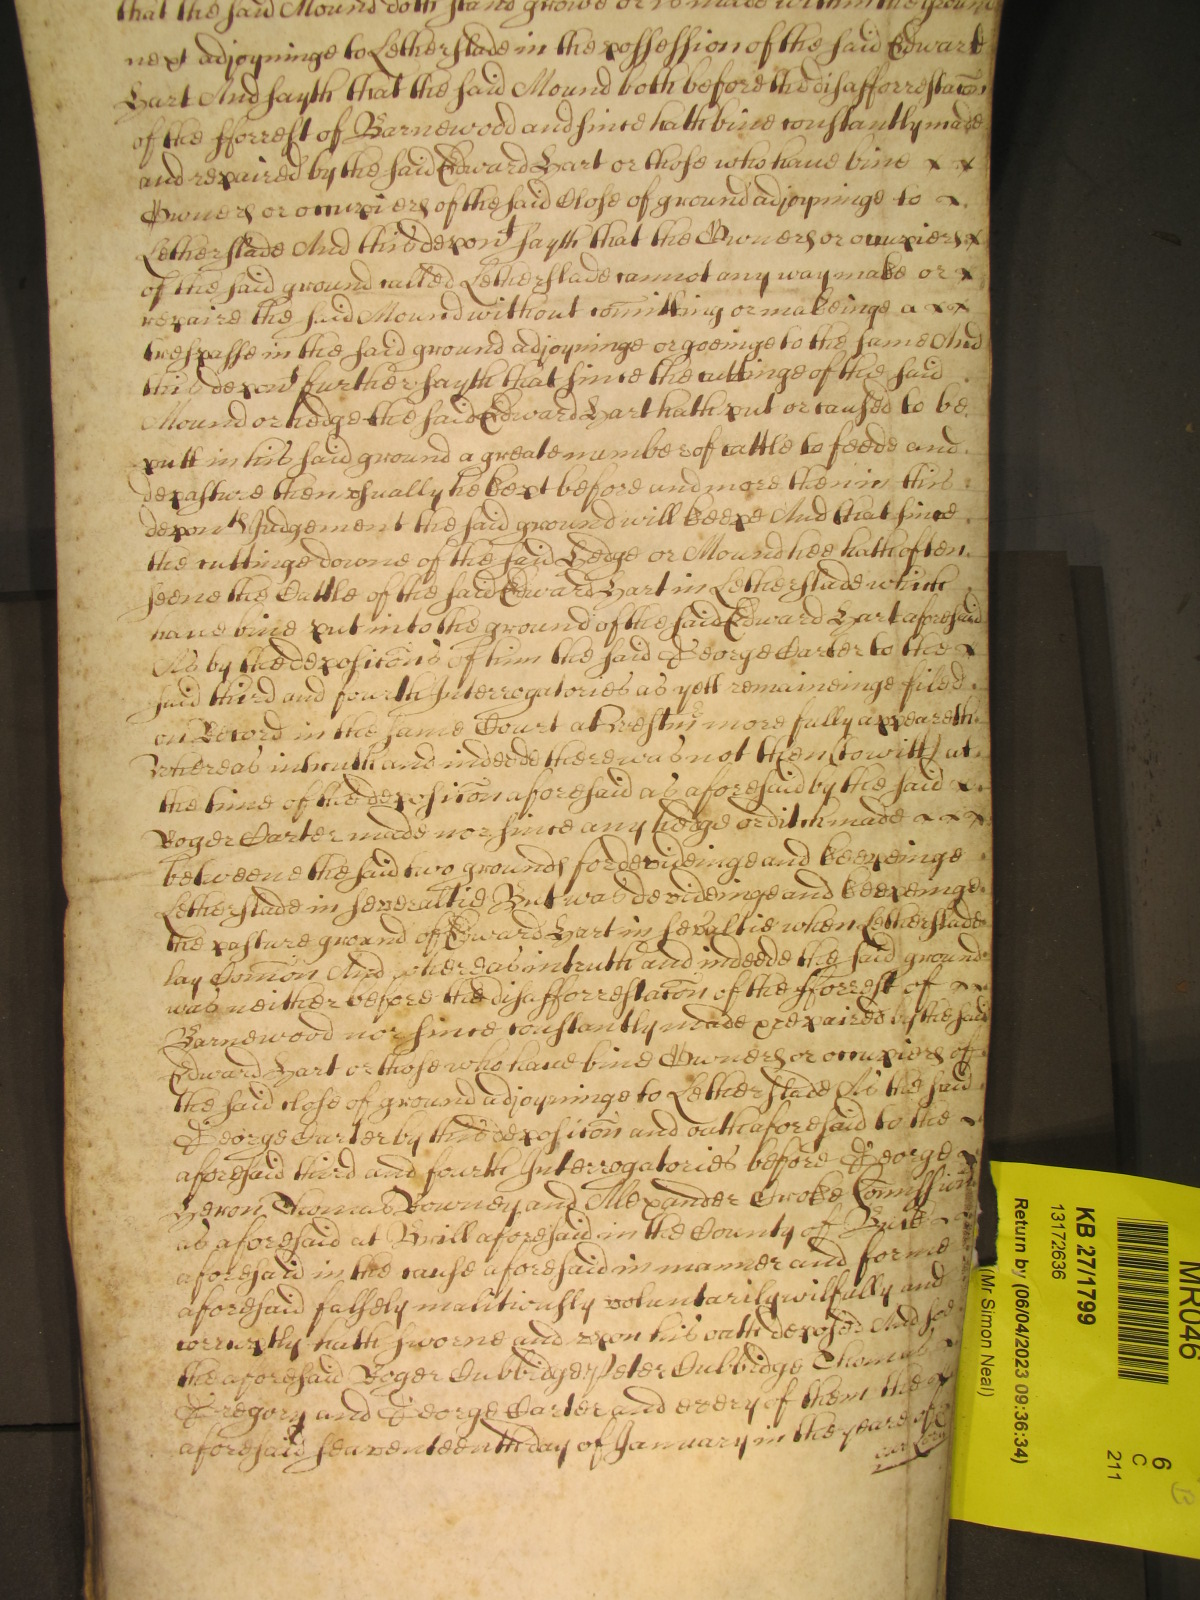 that the said Mound doth stand growe or is made within the ground
next adjoyninge to Letherslade in the possession of the said Edward
Hart And sayth that the said Mound both before the disafforrestacon
of the fforrest of Barnewood and since hath bine constantly made
and repaired by the said Edward Hart or those who have bine x x
Owners or occupiers of the said Close of ground adjoyninge to x
Letherslade And this depont sayth that the Owners or occupiers x
of the said ground called Letherslade cannot any way make or x
repaire the said Mound without comitting or makeinge a x x
trespasse in the said ground adjoyninge or goeinge to the same And
this depont further sayth that since the cuttinge of the said
Mound or hedge the said Edward Hart hath put or caused to be
putt in his said ground a greate number of cattle to feede and
depasture then usually he kept before and more then in this
deponts Judgement the said ground will keepe And that since
the cuttinge downe of the said Hedge or Mound hee hath often
seene the Cattle of the said Edward Hart in Letherslade which
have bine put into the ground of the said Edward Hart aforesaid
As by the deposicons of him the said George Carter to the x
said third and fourth Interrogatories as yett remaineinge filed
on Record in the same Court at Westmr more fully appeareth
Whereas in truth and indeede there was not then (to witt) at
the time of the deposicon aforesaid as aforesaid by the said x
Roger Carter made nor since any hedge or ditch made x x x
betweene the said two grounds for devideinge and keepeinge
Letherslade in severaltie But was devideinge and keepeinge
the pasture ground of Edward Hart in sevaltie when Letherslade
lay Comon And whereas in truth and indeede the said ground
was neither before the disafforrestacon of the fforrest of x x
Barnewood nor since constantly made or repaired by the said
Edward Hart or those who have bine Owners or occupiers of
the said close of ground adjoyninge to Letherslade As the said
George Carter by this deposicon and oath aforesaid to the x
aforesaid third and fourth Interrogatories before George x
Heron Thomas Downey and Alexander Croke Comissionrs
as aforesaid at Brill aforesaid in the County of Buck x
aforesaid in the cause aforesaid in manner and forme
aforesaid falsely malitiously voluntarily wilfully and
corruptly hath sworne and upon his oath deposed And soe
the aforesaid Roger Cubbidge Peter Cubbidge Thomas x
Gregory and George Carter and every of them the x
aforesaid seaventeenth day of January in the yeare of
our Lord
MR046
6
C
211
KB 27/1799
13172636
Return by (06/04/2023 09:36:34)
(Mr Simon Neal)